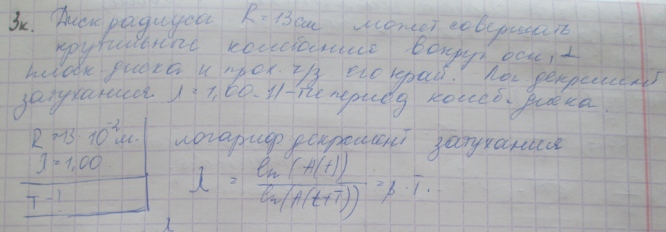 3к. Диск радиуса R = 13 см может совершать
крутильные колебания вокруг оси, ⊥
плоск диска и прох. ч/з его край. Лог декремент
затухания λ = 1,00. Н-ти период колеб. диска.
R = 13 · 10⁻² м.
λ = 1,00
T - ?
логариф декремент затухания
λ = ln(A(t)) / ln(A(t+T)) = β · T.